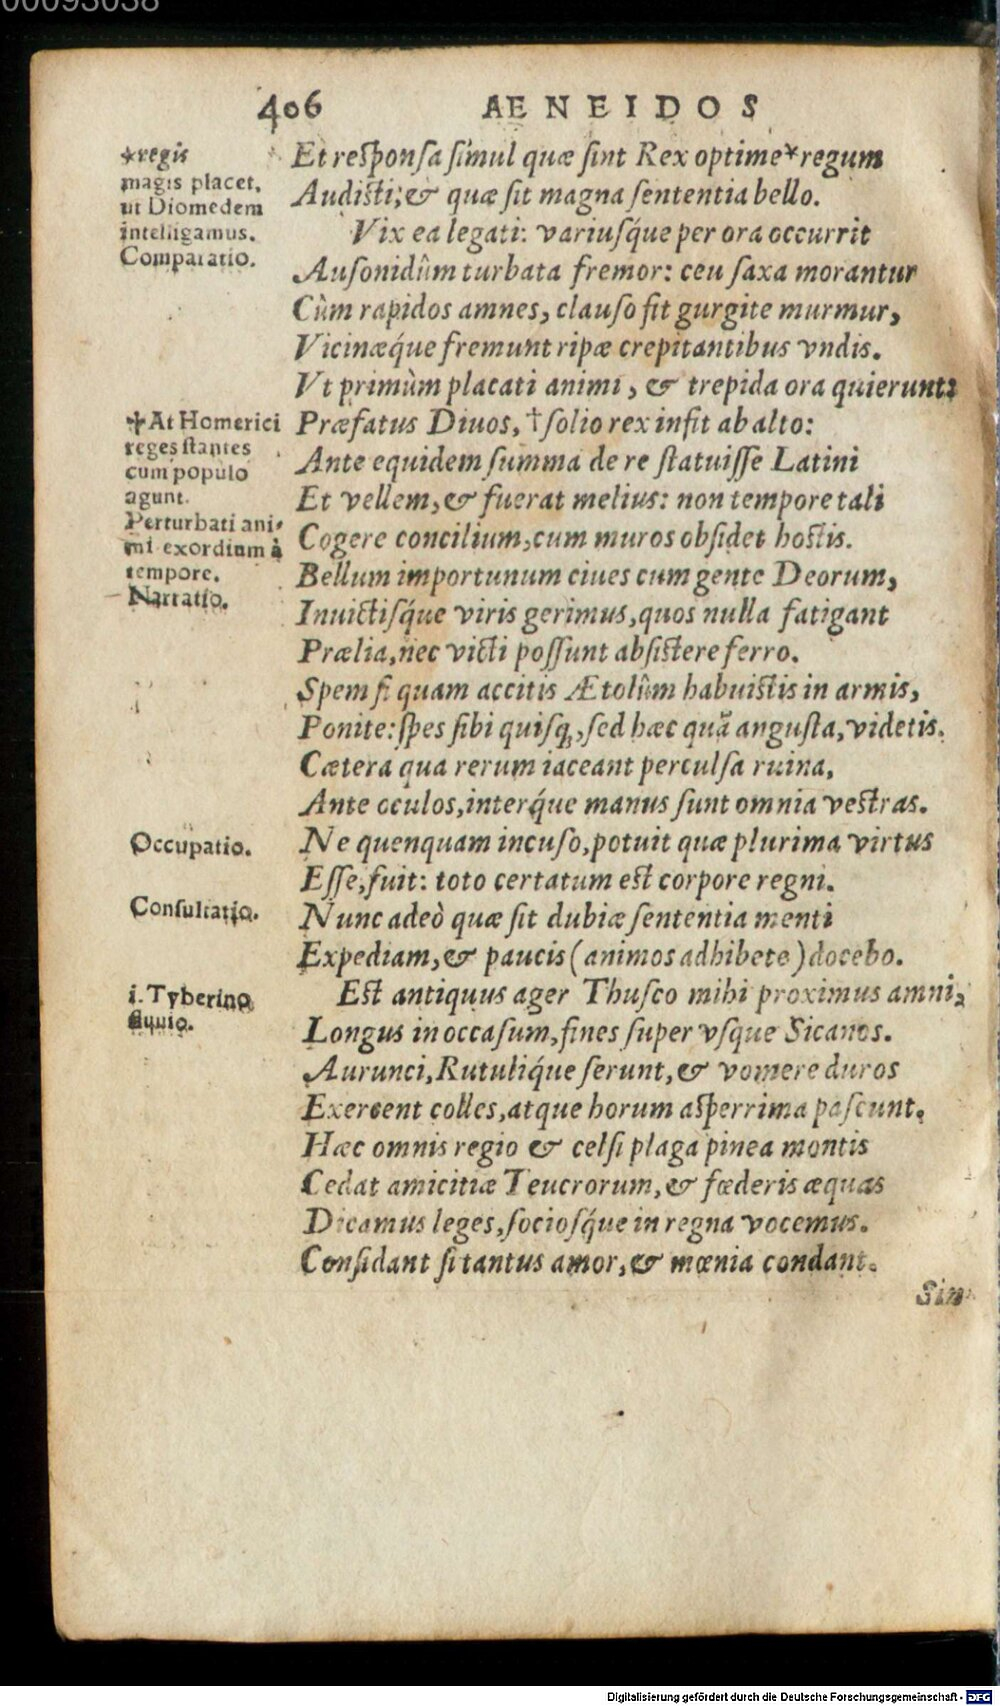 00093038
406 AENEIDOS
*regis
magis placet,
ut Diomedem
intelligamus.
Comparatio.
Et responsa simul quæ sint Rex optime*regum
Audisti; & quæ sit magna sententia bello.
Vix ea legati: variusq́ue per ora occurrit
Ausonidûm turbata fremor: ceu saxa morantur
Cùm rapidos amnes, clauso fit gurgite murmur,
Vicinæq́ue fremunt ripæ crepitantibus vndis.
Vt primùm placati animi, & trepida ora quierunt:
✢At Homerici
reges stantes
cum populo
agunt.
Perturbati ani-
mi exordium à
tempore.
Narratio.
Præfatus Diuos, †solio rex infit ab alto:
Ante equidem summa de re statuisse Latini
Et vellem, & fuerat melius: non tempore tali
Cogere concilium, cum muros obsidet hostis.
Bellum importunum ciues cum gente Deorum,
Inuictisq́ue viris gerimus, quos nulla fatigant
Prælia, nec victi possunt absistere ferro.
Spem si quam accitis Ætolûm habuistis in armis,
Ponite: spes sibi quisq;, sed hæc quã angusta, videtis.
Cætera qua rerum iaceant perculsa ruina,
Ante oculos, interq́ue manus sunt omnia vestras.
Occupatio.
Ne quenquam incuso, potuit quæ plurima virtus
Esse, fuit: toto certatum est corpore regni.
Consultatio.
Nunc adeò quæ sit dubiæ sententia menti
Expediam, & paucis (animos adhibete) docebo.
i. Tyberino
fluuio.
Est antiquus ager Thusco mihi proximus amni,
Longus in occasum, fines super vsque Sicanos.
Aurunci, Rutuliq́ue serunt, & vomere duros
Exercent colles, atque horum asperrima pascunt.
Hæc omnis regio & celsi plaga pinea montis
Cedat amicitiæ Teucrorum, & fœderis æquas
Dicamus leges, sociosq́ue in regna vocemus.
Considant si tantus amor, & mœnia condant.
Sin
Digitalisierung gefördert durch die Deutsche Forschungsgemeinschaft - DFG